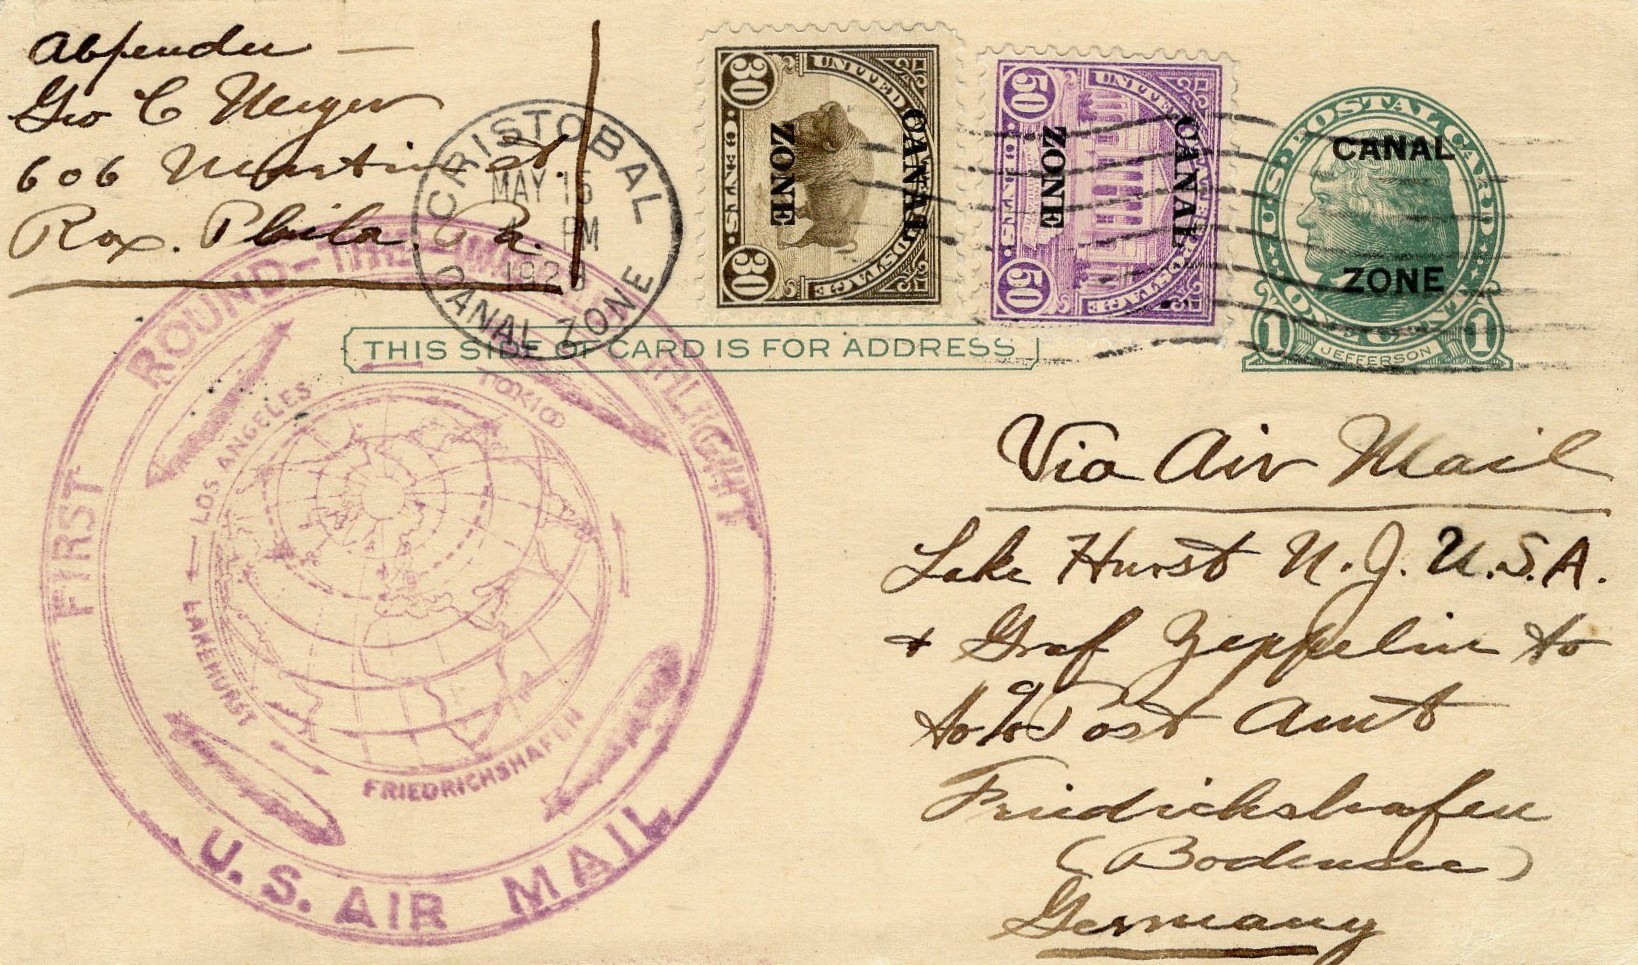 Absender —
Geo C Meyer
606 Martin St.
Rox. Phila. Pa.
CRISTOBAL
MAY 15
PM
192
CANAL ZONE
30 UNITED STATES POSTAGE 30
CANAL
ZONE
50 UNITED STATES POSTAGE 50
CANAL
ZONE
U.S. POSTAL CARD
CANAL
ZONE
1 ONE CENT 1
JEFFERSON
THIS SIDE OF CARD IS FOR ADDRESS
FIRST ROUND-THE-WORLD FLIGHT
U.S. AIR MAIL
LOS ANGELES
TOKIO
LAKEHURST
FRIEDRICHSHAFEN
Via Air Mail
Lake Hurst N.J. U.S.A.
+ Graf Zeppelin to
to Post Amt
Friedichshafen
(Bodensee)
Germany